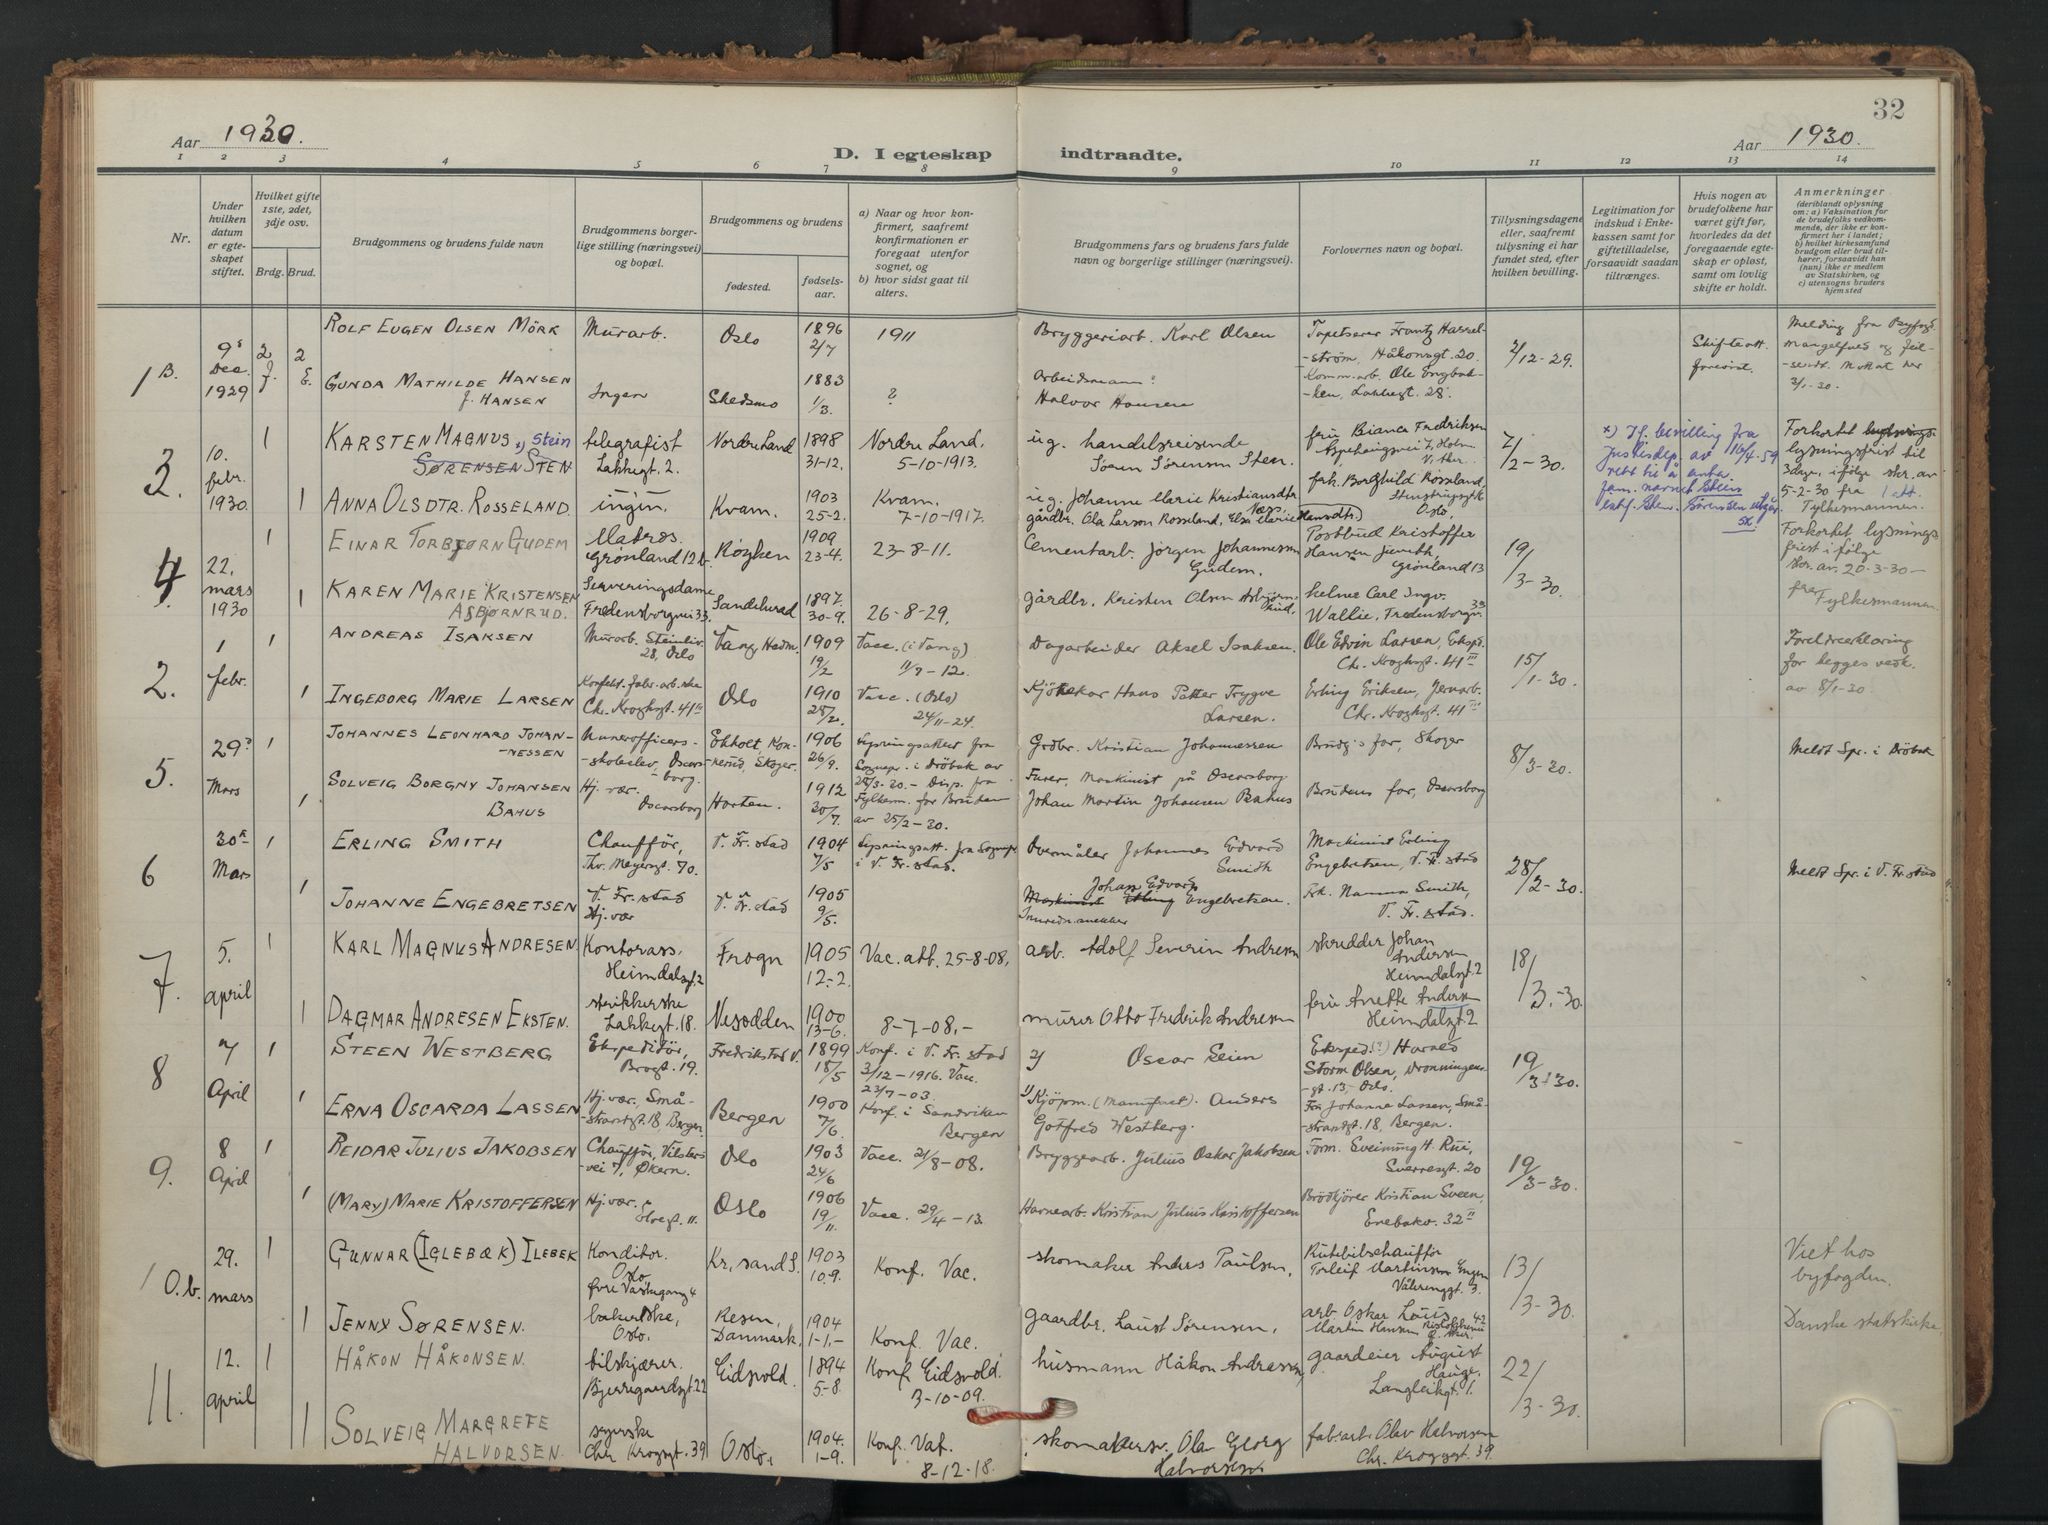 32
Aar 1930.
D. I egteskap
indtraadte.
Aar 1930.
1 2 3 4 5 6 7 8 9 10 11 12 13 14
Nr.
Under hvilken datum er egteskapet stiftet.
Hvilket gifte 1ste, 2det, 3dje osv.
Brdg. Brud.
Brudgommens og brudens fulde navn
Brudgommens borgerlige stilling (næringsvei) og bopæl.
Brudgommens og brudens
fødested.
fødselsaar.
a) Naar og hvor konfirmert, saafremt konfirmationen er foregaat utenfor sognet, og
b) hvor sidst gaat til alters.
Brudgommens fars og brudens fars fulde navn og borgerlige stillinger (næringsvei).
Forlovernes navn og bopæl.
Tillysningsdagene eller, saafremt tillysning ei har fundet sted, efter hvilken bevilling.
Legitimation for indskud i Enkekassen samt for giftetilladelse, forsaavidt saadan tiltrænges.
Hvis nogen av brudefolkene har været gift før, hvorledes da det foregaaende egteskap er opløst, samt om lovlig skifte er holdt.
Anmerkninger
(deriblandt oplysning om: a) Vaksination for de brudefolks vedkommende, der ikke er konfirmert her i landet; b) hvilket kirkesamfund brudgom eller brud tilhører, forsaavidt han (hun) ikke er medlem av Statskirken, og c) utensogns bruders hjemsted
1 B. 9 Dec. 1929 2 f. 2 E.
ROLF EUGEN OLSEN MÖRK Murarb. Oslo 1896 2/7 1911 Bryggeriarb. Karl Olsen Tapetserer Frantz Hasselström, Håkonsgt. 20. 2/12-29. Skifteatt. forevist. Melding fra Byfogd.
GUNDA MATHILDE HANSEN f. HANSEN Ingen Skedsmo 1883 1/3. ? Arbeidsmann Halvor Hansen Komm.arb. Ole Engbakken, Lakkegt. 28. 3/1-30.
3. 10. febr. 1930. 1
KARSTEN MAGNUS x) Stein SØRENSEN STEN telegrafist Lakkegt. 2. Nordre Land 1898 31-12. Nordre Land. 5-10-1913. ug. handelsreisende Sören Sörensen Sten. frue Bianca Fredriksen 7/2-30. x) If. bevilling fra Justisdep. av 16/4-59 rett til å anta fam. navnet Stein Forkortet lysningsfrist til 3 dage, ifölge skr. av 5-2-30 fra Fylkesmannen.
1 ANNA OLSDTR. ROSSELAND. ingen. Kvam. 1903 25-2. Kvam. 7-10-1917. ug. Johanne Marie Kristiansdtr Næs, gårdbr. Ola Larson Rosseland, Elsa Marie Hansdtr.) frk. Borghild Rosseland, Oslo.
4. 22. mars 1930 1
EINAR TORBJØRN GUDEM Matros. Grønland 12 b. Røyken 1909 23-4. 23-8-11. Cementarb. Jörgen Johannessen Gudem. Postbud Kristoffer Hansen Grønland 13 19/3-30. Forkortet lysningsfrist i følge skr. av. 20-3-30 - fra Fylkesmannen.
1 KAREN MARIE KRISTENSEN ASBJØRNRUD. Serveringsdame Fredensborgvei 33. Sandeherad 1897. 30-9. 26-8-29. gårdbr. Kristen Olsen Asbjørnrud. kelner Carl Ingv. Wallie, Fredensborgv. 33
2. 1 febr. 1
ANDREAS ISAKSEN Murarb. 28, Oslo Vang, Hedm. 1909 19/2 Vacc. (i Vang) 11/9-12. Dagarbeider Aksel Isaksen. Ole Edvin Larsen, Eksp. Chr. Kroghsgt. 41 III 15/1-30. Foreldreerklæring for begges vedk. av 8/1-30.
1 INGEBORG MARIE LARSEN Konfekt. fabr. arb.ske Chr. Kroghsgt. 41 III Oslo 1910 25/2. Vacc. (Oslo) 24/11-24. Kjörekar Hans Petter Trygve Larsen. Erling Eriksen, Jernarb. Chr. Kroghsgt. 41 III
5. 29 Mars 1
JOHANNES LEONHARD JOHANNESSEN Underofficersskoleelev, Oscarsborg. Ekholt, Konnerud, Skoger. 1906 26/9. Lysningsattest fra Sognepr. i Dröbak av 25/3-30. - Disp. fra Fylkesm. for Bruden av 25/2-30. Grdbr. Kristian Johannessen Brudg's far, Skoger 8/3-30. Meldt Spr. i Dröbak
1 SOLVEIG BORGNY JOHANSEN BAHUS Hj. vær. Oscarsborg Horten. 1912 30/7. Furer, Maskinist på Oscarsborg Johan Martin Johansen Bahus Brudens far, Oscarsborg
6 30 Mars 1
ERLING SMITH Chaufför, Thv. Meyersgt. 70. V. Fr.stad 1904 7/5 Lysningsatt. fra Sognepr i V. Fr.stad. Overmåler Johannes Edvard Smith Maskinist Erling Engebretsen, V. Fr.stad 28/2-30. Meldt Spr. i V. Fr.stad
1 JOHANNE ENGEBRETSEN V. Fr.stad Hj. vær V. Fr.stad 1905 9/5. Johan Edvard Maskinist Erling Engebretsen. Frk. Nanna Smith, V. Fr.stad.
7. 5. april 1
KARL MAGNUS ANDRESEN Kontorass. Heimdalsgt. 2 Frogn 1905 12-2. Vac. att. 25-8-08. arb. Adolf Severin Andresen skredder Johan Andersen Heimdalsgt. 2 18/3-30.
1 DAGMAR ANDRESEN EKSTEN. strikkerske Lakkegt. 18. Nesodden 1900 13-6. 8-7-08.- murer Otto Fredrik Andresen frue Anette Andersen Heimdalsgt. 2
8 7 April 1
STEEN WESTBERG Ekspeditör, Brogt. 19. Fredrikstad V. 1899 18/5 Konf. i V. Fr.stad 3/12-1916. Vacc. 23/7-03. 2) Oscar Eeim Eksped. (?) Harald Storm Olsen, Dronningensgt. 13, Oslo. 19/3-30.
1 ERNA OSCARDA LASSEN Hj. vær. Småstrandgt. 18 Bergen. Bergen 1900 7/6. Konf. i Sandviken Bergen 1) Kjöpm. (Manufact). Anders Gotfred Westberg. Fru Johanne Lassen, Småstrandgt. 18, Bergen.
9. 8 April 1
REIDAR JULIUS JAKOBSEN Chaufför, Økern. Oslo 1903 24/6 Vacc. 21/8-08. Bryggearb. Julius Oskar Jakobsen Form. Sveinung H. Rui, Sverresgt. 20 19/3-30.
1 (MARY) MARIE KRISTOFFERSEN Hj. vær. 11. Oslo 1906 19/11. Vacc. 29/4-13. Havnearb. Kristian Julius Kristoffersen Brödkjörer Kristian Sveen, Enebakv. 32 II
10.b. 29. mars 1
GUNNAR (IGLEBÆK) ILEBEK Konditor. Oslo Kr,sand S. 1903 10-9. Konf. Vac. skomaker Anders Paulsen. Rutebilchaufför Torleif Martinsen Engen Vålerenggt. 3. 13/3-30. Viet hos byfogden.
1 JENNY SØRENSEN. Oslo. Resen, Danmark. 1904 1-1.- Konf. Vac. gaardbr. Laust Sørensen. arb. Oskar Louis Martin Hansen Danske statskirke.
11. 12. april 1
HÅKON HÅKONSEN. bilskjærer. Bjerregaardsgt. 22 Eidsvold. 1894 5-8. Konf. Eidsvold. 3-10-09. husmann Håkon Andreassen gaardeier August Hauge. Langleikgt. 1. 22/3-30.
1 SOLVEIG MARGRETE HALVORSEN. syerske Chr. Krogsgt. 39 Oslo. 1904. 1-9. Konf. Vat. 8-12-18. skomakersv. Ola Georg Halvorsen fabr.arb. Olav Halvorsen Chr. Kroggsgt. 39.